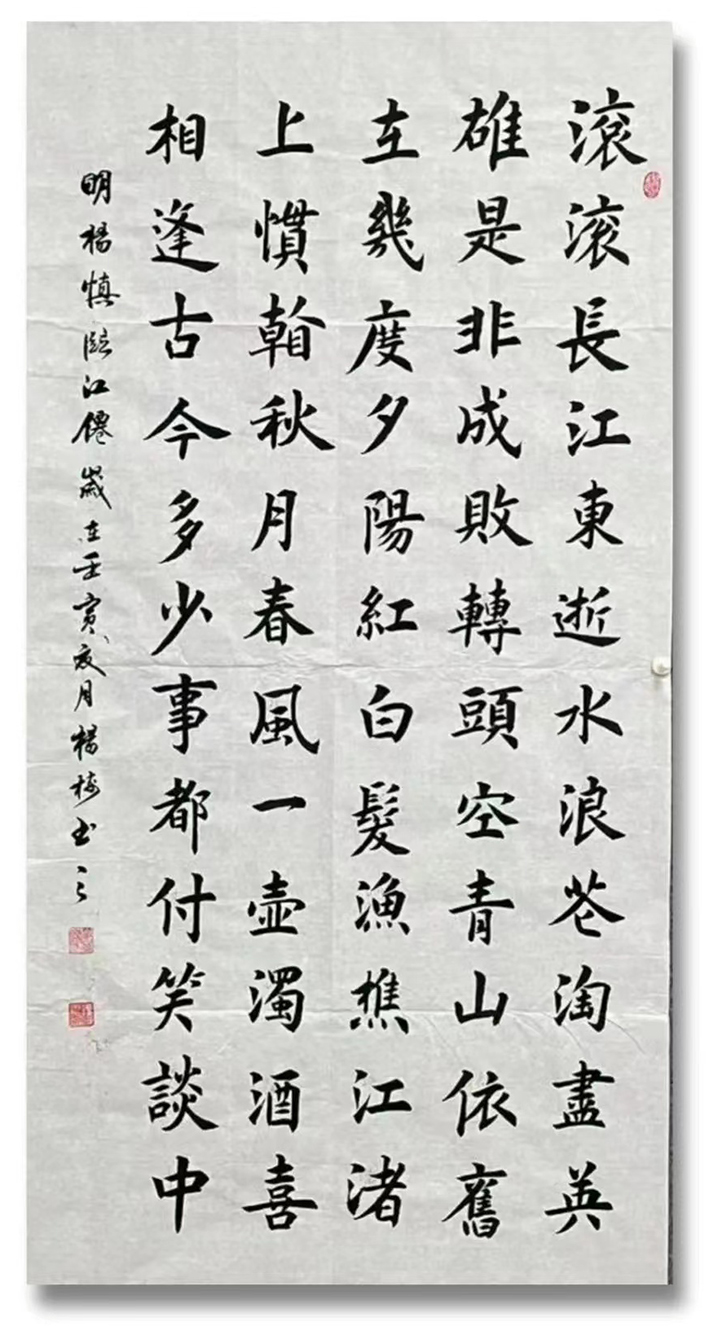 滚滚長江東逝水浪花淘盡英
雄是非成敗轉頭空青山依舊
在幾度夕陽紅白髮漁樵江渚
上慣看秋月春風一壺濁酒喜
相逢古今多少事都付笑談中
明楊慎臨江僊歲在壬寅夏月楊梅書